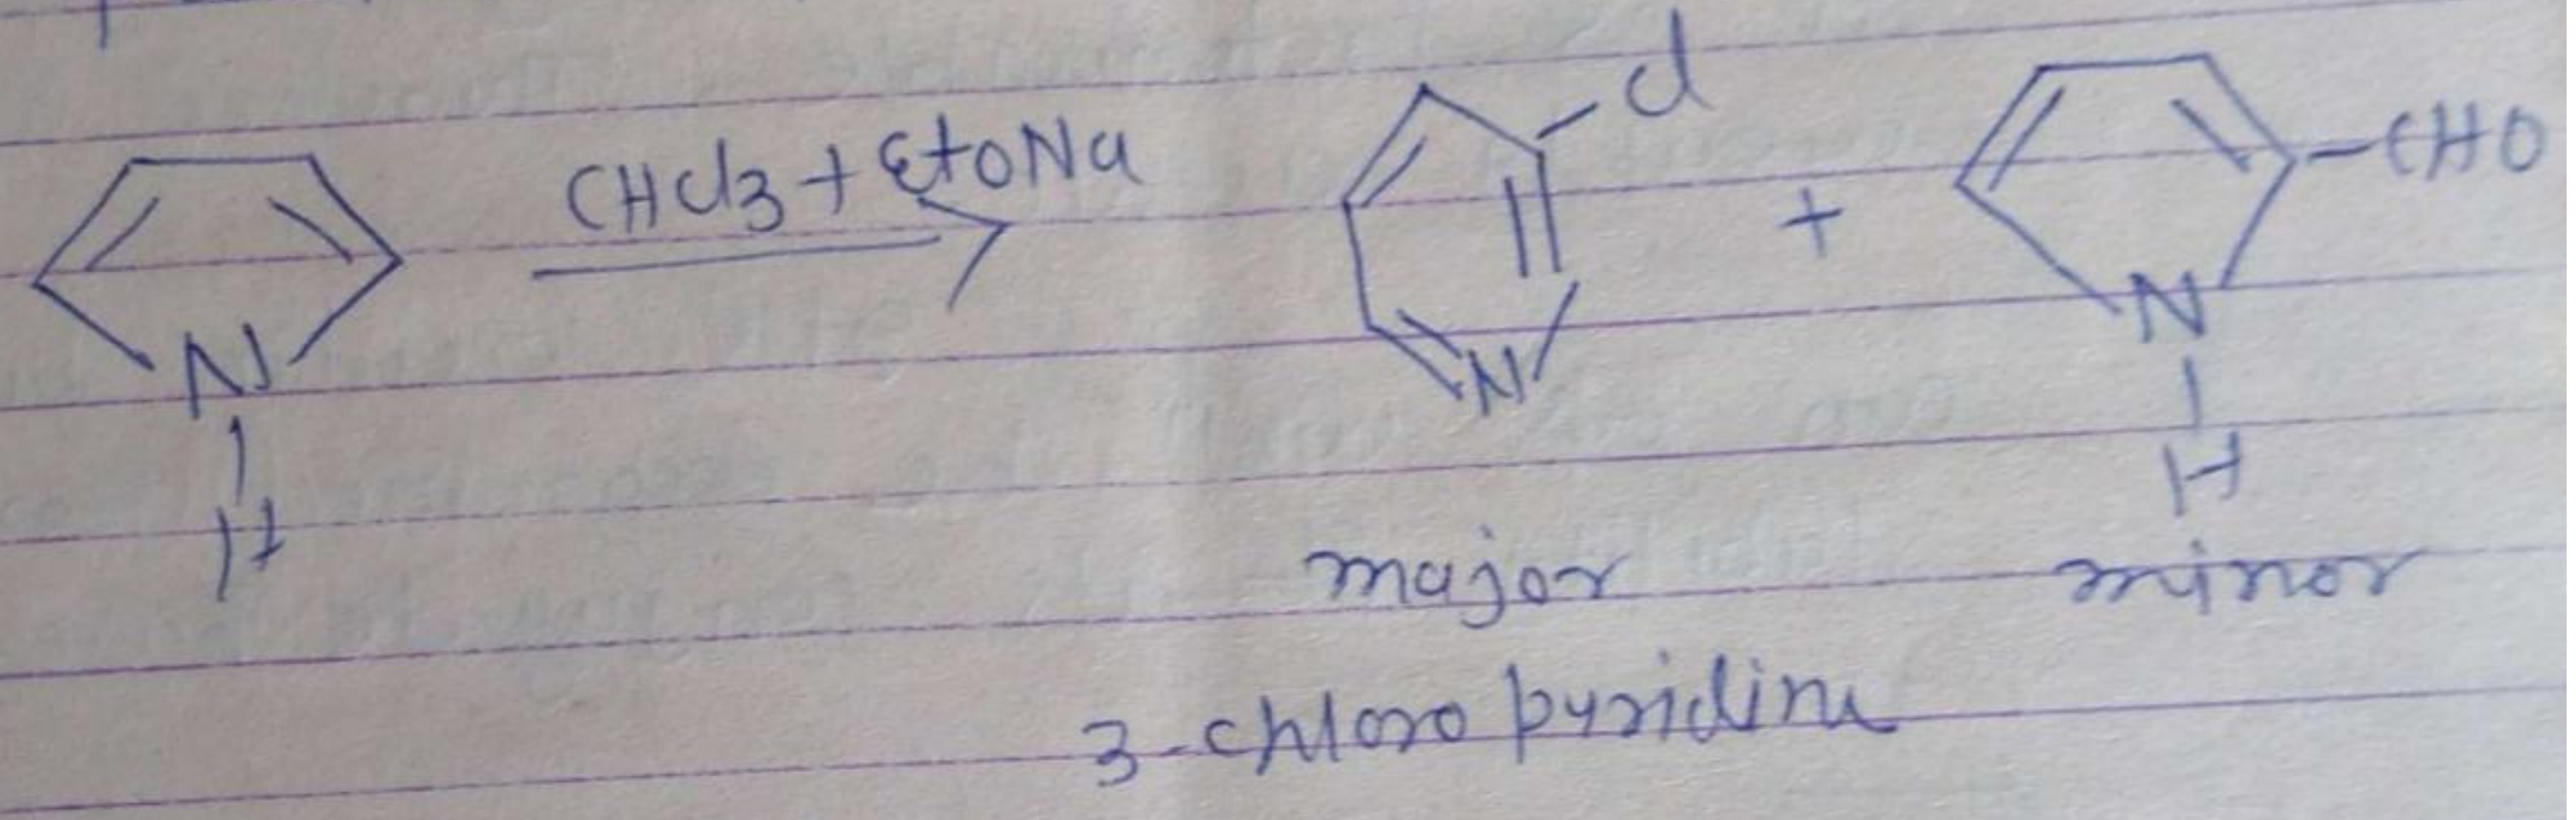 CHCl3 + EtONa
Cl
+
CHO
N
H
N
N
H
major
minor
3-chloro pyridine